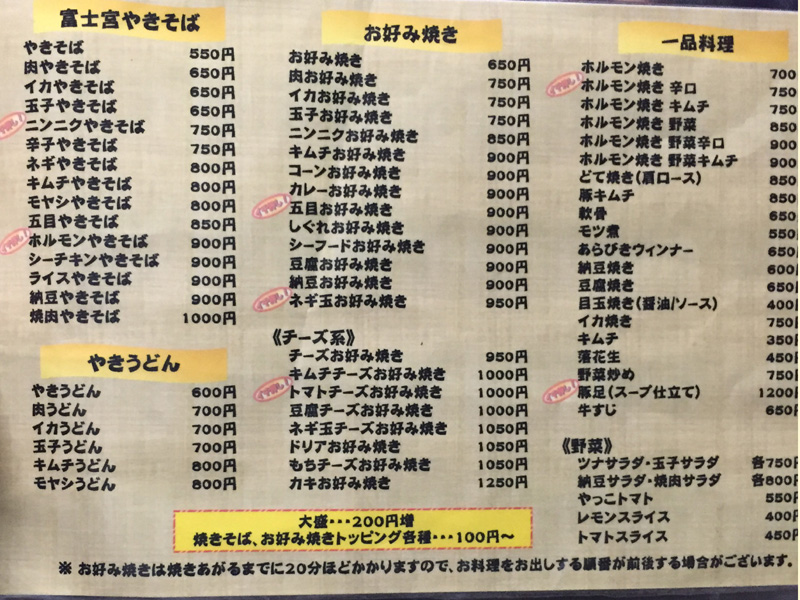 富士宮やきそば
やきそば 550円
肉やきそば 650円
イカやきそば 650円
玉子やきそば 650円
ニンニクやきそば 750円
辛子やきそば 750円
ネギやきそば 800円
キムチやきそば 800円
モヤシやきそば 800円
五目やきそば 850円
ホルモンやきそば 900円
シーチキンやきそば 900円
ライスやきそば 900円
納豆やきそば 900円
焼肉やきそば 1000円
やきうどん
やきうどん 600円
肉うどん 700円
イカうどん 700円
玉子うどん 700円
キムチうどん 800円
モヤシうどん 800円
お好み焼き
お好み焼き 650円
肉お好み焼き 750円
イカお好み焼き 750円
玉子お好み焼き 750円
ニンニクお好み焼き 850円
キムチお好み焼き 900円
コーンお好み焼き 900円
カレーお好み焼き 900円
五目お好み焼き 900円
しぐれお好み焼き 900円
シーフードお好み焼き 900円
豆腐お好み焼き 900円
納豆お好み焼き 900円
ネギ玉お好み焼き 950円
《チーズ系》
チーズお好み焼き 950円
キムチチーズお好み焼き 1000円
トマトチーズお好み焼き 1000円
豆腐チーズお好み焼き 1000円
ネギ玉チーズお好み焼き 1050円
ドリアお好み焼き 1050円
もちチーズお好み焼き 1050円
カキお好み焼き 1250円
一品料理
ホルモン焼き 700
ホルモン焼き 辛口 750
ホルモン焼き キムチ 750
ホルモン焼き 野菜 850
ホルモン焼き 野菜辛口 900
ホルモン焼き 野菜キムチ 900
どて焼き(肩ロース) 850
豚キムチ 850
軟骨 650
モツ煮 550
あらびきウィンナー 650
納豆焼き 600
豆腐焼き 650
目玉焼き(醤油/ソース) 400
イカ焼き 750
キムチ 350
落花生 450
野菜炒め 750
豚足(スープ仕立て) 1200
牛すじ 650
《野菜》
ツナサラダ・玉子サラダ 各750円
納豆サラダ・焼肉サラダ 各800円
やっこトマト 550
レモンスライス 400
トマトスライス 450
大盛・・・200円増
焼きそば、お好み焼きトッピング各種・・・100円〜
※ お好み焼きは焼きあがるまでに20分ほどかかりますので、お料理をお出しする順番が前後する場合がございます。